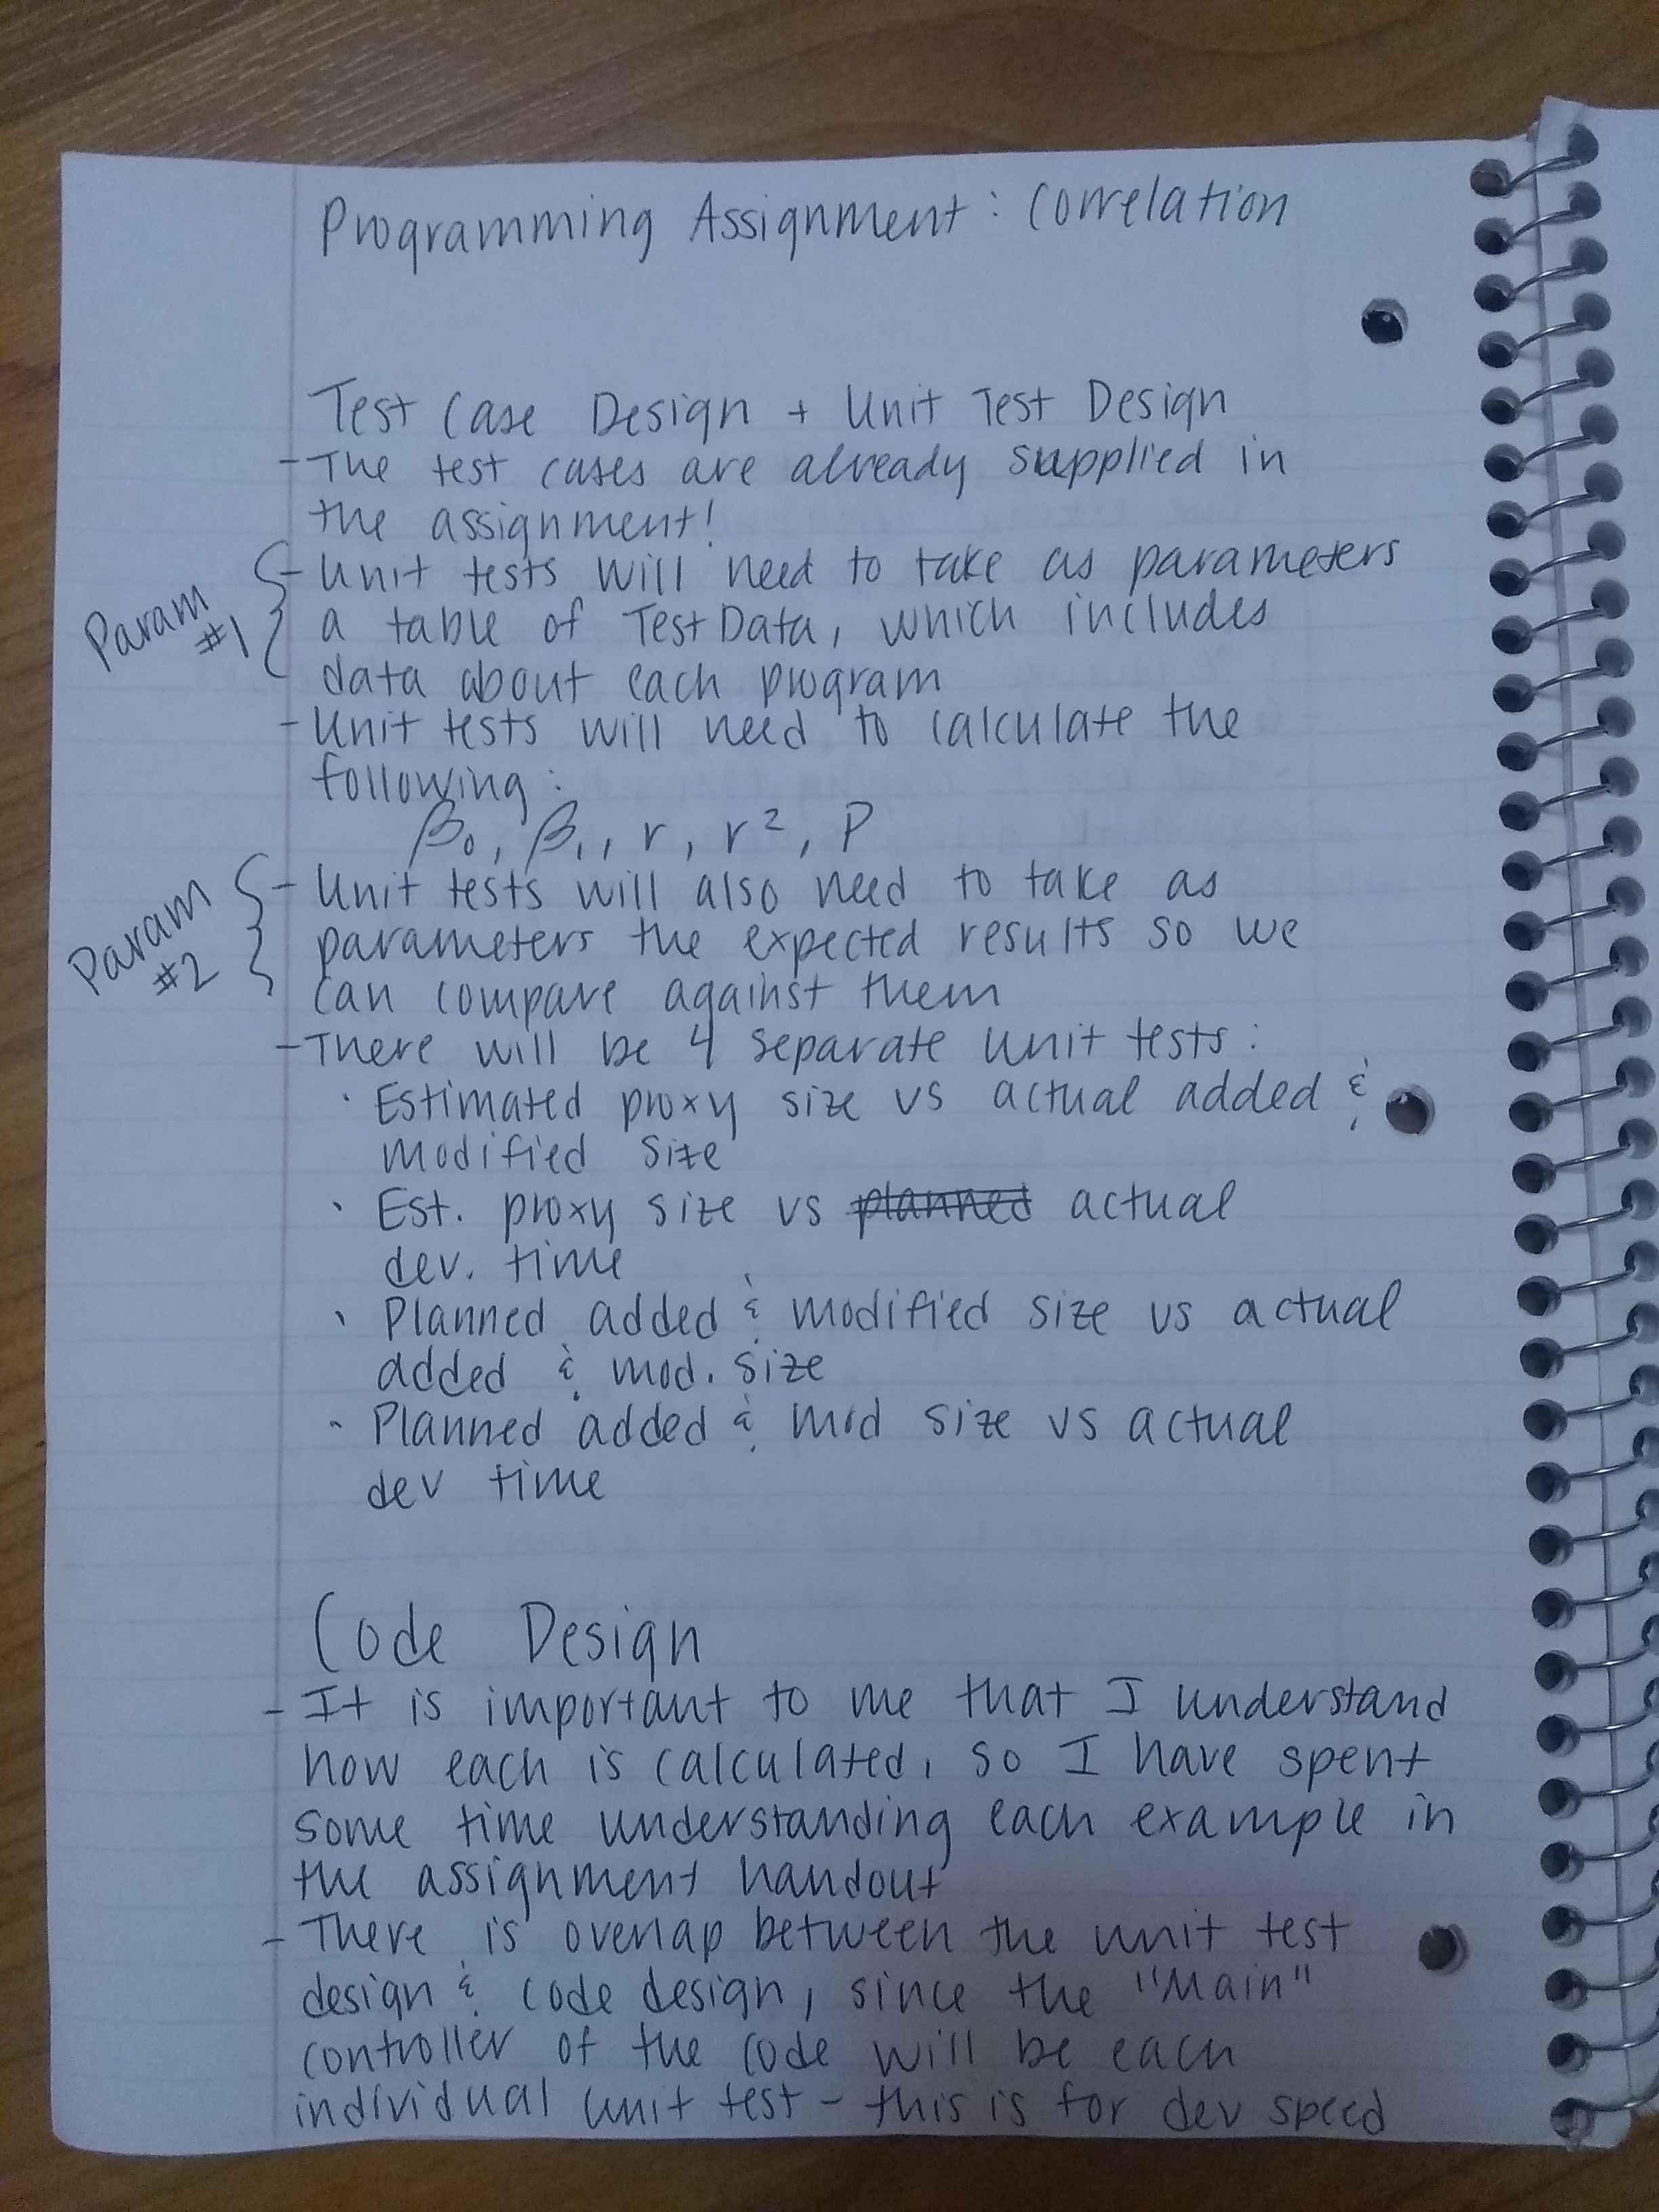 Programming Assignment: Correlation
Test Case Design + Unit Test Design
- The test cases are already supplied in
the assignment!
Param #1
- Unit tests will need to take as parameters
a table of TestData, which includes
data about each program
- Unit tests will need to calculate the
following:
β₀, β₁, r, r², P
Param #2
- Unit tests will also need to take as
parameters the expected results so we
can compare against them
- There will be 4 separate unit tests:
· Estimated proxy size vs actual added &
modified size
· Est. proxy size vs planned actual
dev. time
· Planned added & modified size vs actual
added & mod. size
· Planned added & mod size vs actual
dev time
Code Design
- It is important to me that I understand
how each is calculated, so I have spent
some time understanding each example in
the assignment handout
- There is overlap between the unit test
design & code design, since the "Main"
controller of the code will be each
individual unit test - this is for dev speed